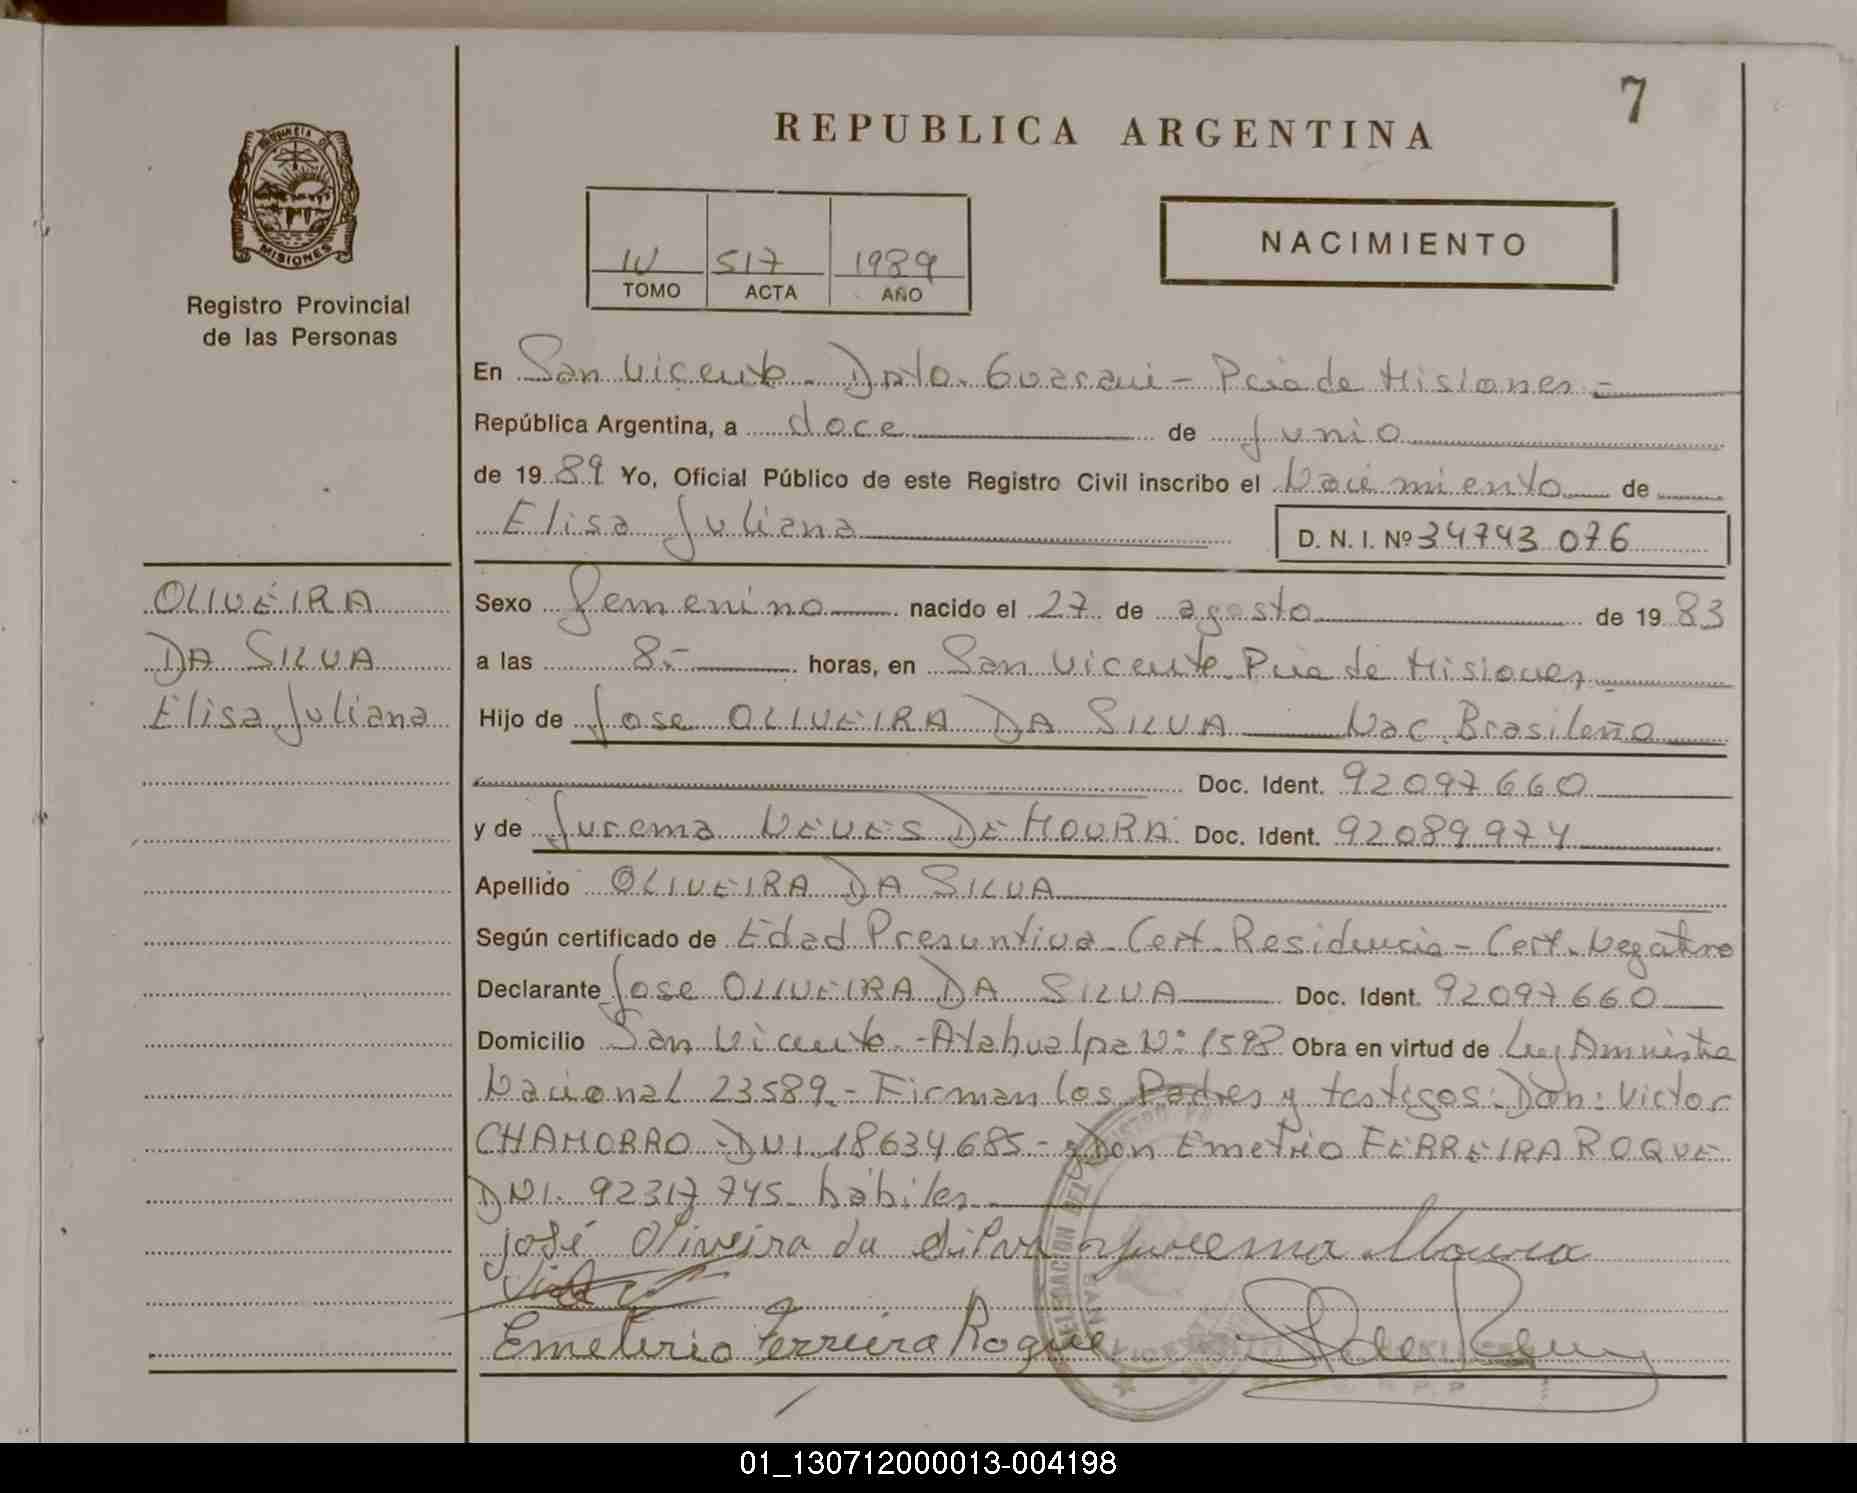 7
REPUBLICA ARGENTINA
PROVINCIA DE
MISIONES
Registro Provincial
de las Personas
NACIMIENTO
IV 517 1989
TOMO ACTA AÑO
En San Vicente - Dpto. Guarani - Pcia de Misiones -
República Argentina, a doce de Junio
de 19 89 Yo, Oficial Público de este Registro Civil inscribo el Nacimiento de
Elisa Juliana D. N. I. Nº 34743 076
OLIVEIRA
DA SILVA
Elisa Juliana
Sexo femenino nacido el 27 de agosto de 19 83
a las 8.- horas, en San Vicente Pcia de Misiones
Hijo de Jose OLIVEIRA DA SILVA Nac. Brasileño
Doc. Ident. 92097660
y de Jurema NEVES DE MOURA Doc. Ident. 92089974
Apellido OLIVEIRA DA SILVA
Según certificado de Edad Presuntiva - Cert. Residencia - Cert. Negativo
Declarante Jose OLIVEIRA DA SILVA Doc. Ident. 92097660
Domicilio San Vicente - Atahualpa Nº 1598 Obra en virtud de Ley Amnistia
Nacional 23589.- Firman los Padres y testigos: Don: Victor
CHAMORRO - DNI 18634685 - y Don Emetrio FERREIRA ROQUE
DNI. 92317745 - hábiles -
josé Oliveira da Silva Jurema Moura
Emeterio Ferreira Roque
01_130712000013-004198